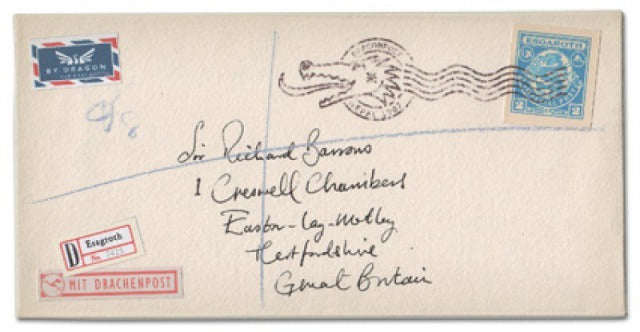 BY DRAGON
ESGAROTH
2
2
Sir Richard Barrons
1 Creswell Chambers
Easton-Lag-Motley
Hertfordshire
Great Britain
D
Esagroth
No.
MIT DRACHENPOST